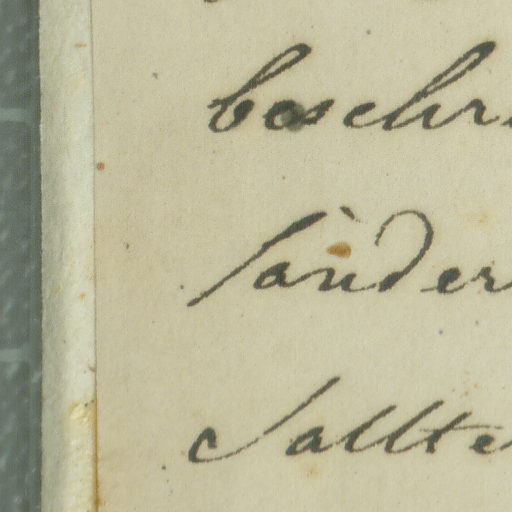 beschr
sànder
Sallte